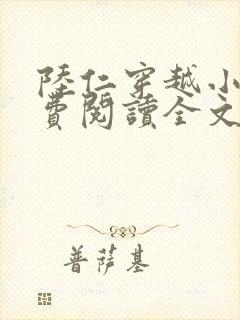 陸仁穿越小
費閱讀全文
普薩基